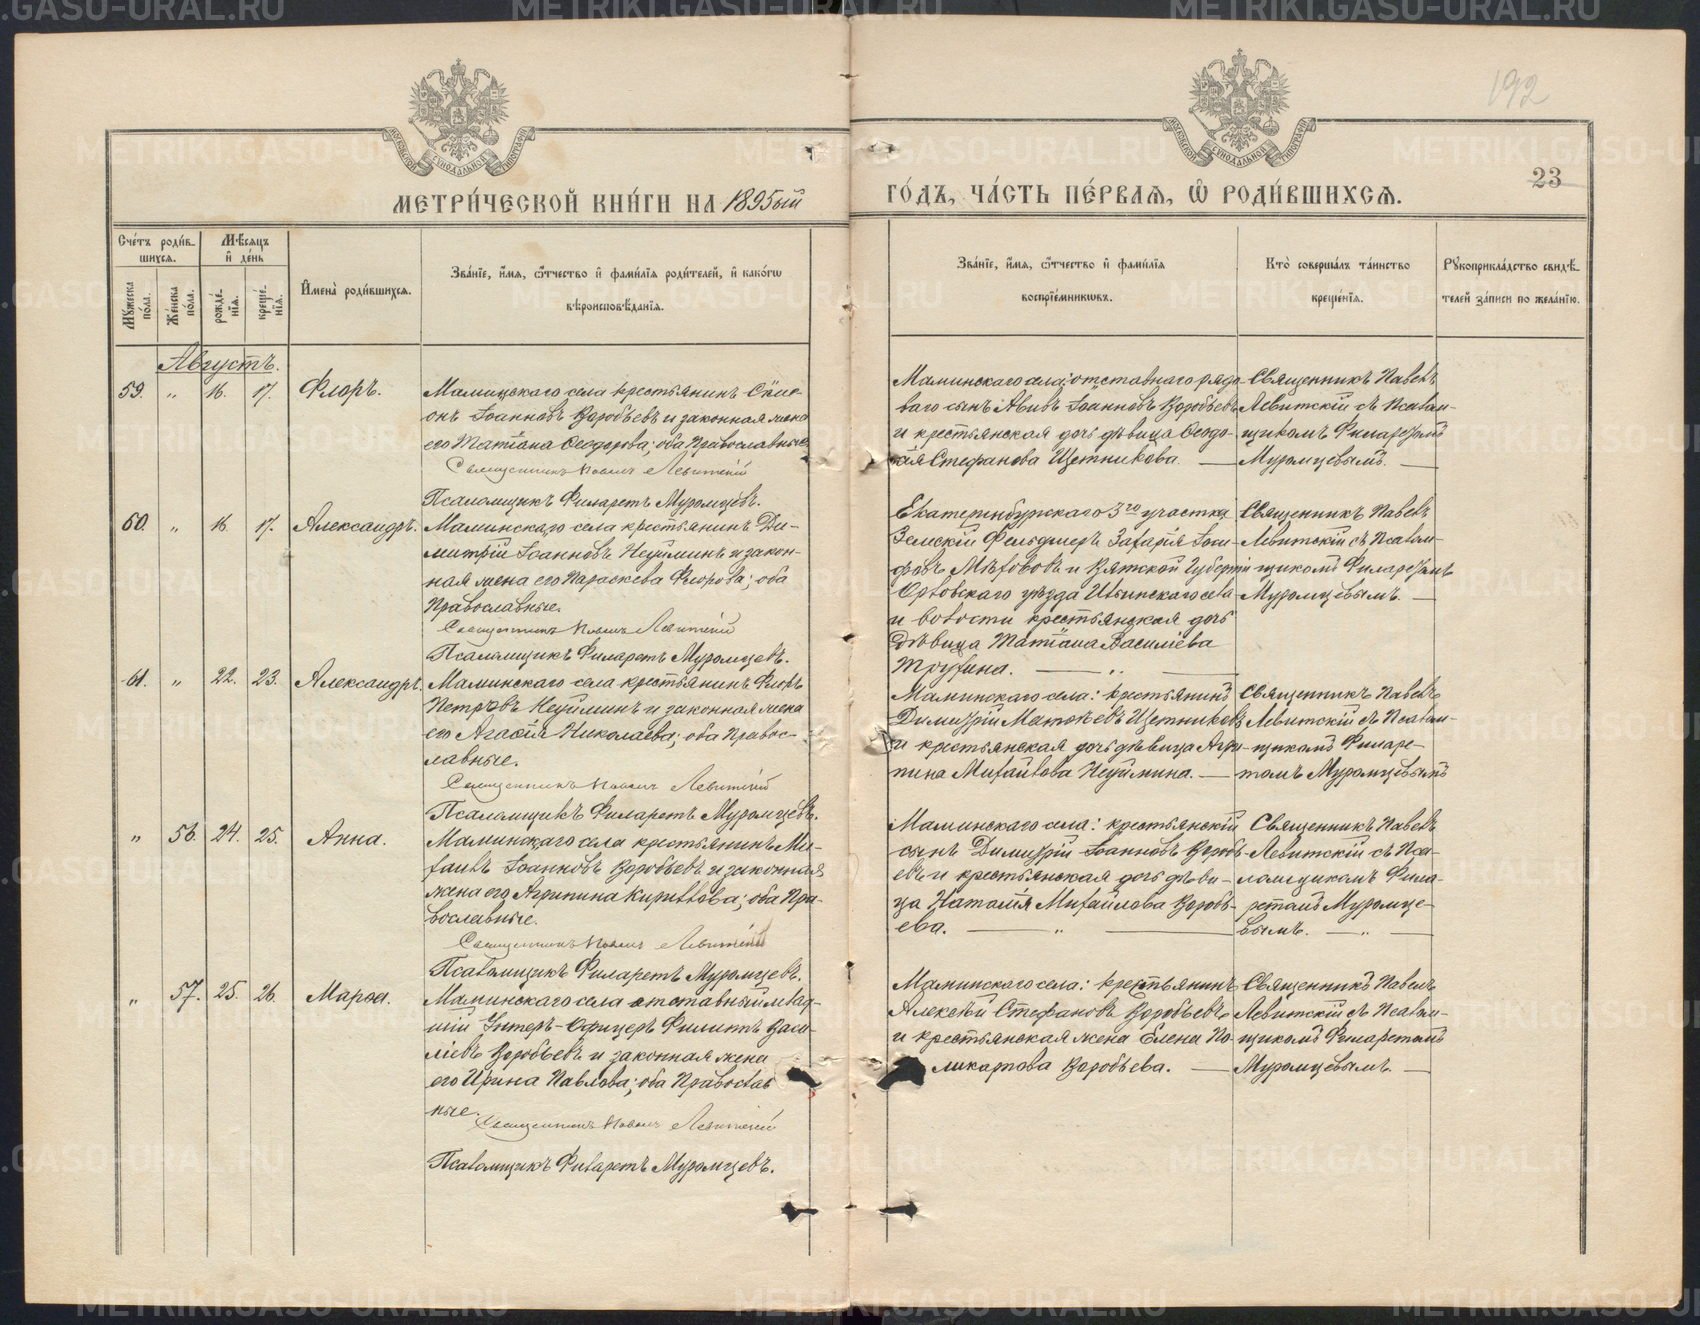 192
МЕТРИ́ЧЕСКОЙ КНИ́ГИ НА 1895ый
ГО́ДЪ, ЧА́СТЬ ПЕ́РВАѦ, Ѡ҆ РОДИ́ВШИХСѦ.
23
Сче́тъ роди́в-
шихсѧ.
Мѹ́жеска по́ла.
Же́нска по́ла.
Мѣ́сѧцъ
и҆ де́нь
рожде́-
нїѧ.
креще́-
нїѧ.
И҆мена̀ роди́вшихсѧ.
Зва́нїе, и҆́мѧ, ѻ҆́тчество и҆ фами́лїѧ роди́телей, и҆ како́гѡ
вѣроисповѣ́данїѧ.
Зва́нїе, и҆́мѧ, ѻ҆́тчество и҆ фами́лїѧ
воспрїе́мникѡвъ.
Кто̀ соверша́лъ та́инство
креще́нїѧ.
Рꙋкоприкла́дство свидѣ́-
телей за́писи по жела́нїю.
Августъ.
59. " 16. 17. Флоръ.
Маминскаго села крестьянинъ Симе-
онъ Іоанновъ Воробьевъ и законная жена
его Татіана Ѳеодорова; оба Православные
Священникъ Павелъ Левитскій
Псаломщикъ Филаретъ Муромцевъ.
Маминскаго села: отставнаго рядо-
ваго сынъ Авивъ Іоанновъ Воробьевъ
и крестьянская дочь дѣвица Ѳеодо-
сія Стефанова Щетникова. —
Священникъ Павелъ
Левитскій съ Псалом-
щикомъ Филаретомъ
Муромцевымъ. —
60. " 16. 17. Александръ.
Маминскаго села крестьянинъ Ди-
митрій Іоанновъ Неуйминъ и закон-
ная жена его Параскева Флорова; оба
Православные.
Священникъ Павелъ Левитскій
Псаломщикъ Филаретъ Муромцевъ.
Екатеринбургскаго 3го участка
Земскій Фельдшеръ Захарія Іоси-
фовъ и Вятской Губерніи
Орловскаго уѣзда села
и волости крестьянская дочь
Дѣвица Татіана Василіева
— " —
Священникъ Павелъ
Левитскій съ Псалом-
щикомъ Филаретомъ
Муромцевымъ. —
61. " 22. 23. Александръ.
Маминскаго села крестьянинъ Флоръ
Петровъ Неуйминъ и законная жена
его Агафія Николаева; оба Правос-
лавные.
Священникъ Павелъ Левитскій
Псаломщикъ Филаретъ Муромцевъ.
Маминскаго села: крестьянинъ
Димитрій Матѳеевъ Щетниковъ
и крестьянская дочь дѣвица Агри-
пина Михайлова Неуймина. —
Священникъ Павелъ
Левитскій съ Псалом-
щикомъ Филаре-
томъ Муромцевымъ
" 56. 24. 25. Анна.
Маминскаго села крестьянинъ Ми-
хаилъ Іоанновъ Воробьевъ и законная
жена его Агрипина Кириллова; оба Пра-
вославные.
Священникъ Павелъ Левитскій
Псаломщикъ Филаретъ Муромцевъ.
Маминскаго села: крестьянскій
сынъ Димитрій Іоанновъ Воробь-
евъ и крестьянская дочь дѣви-
ца Наталія Михайлова Воробь-
ева. — " —
Священникъ Павелъ
Левитскій съ Пса-
ломщикомъ Фила-
ретомъ Муромце-
вымъ. — " —
" 57. 25. 26. Марѳа.
Маминскаго села отставный млад-
шій Унтеръ-Офицеръ Филиппъ Васи-
ліевъ Воробьевъ и законная жена
его Ирина Павлова; оба Православ
ные.
Священникъ Павелъ Левитскій
Псаломщикъ Филаретъ Муромцевъ.
Маминскаго села: крестьянинъ
Алексѣй Стефановъ Воробьевъ
и крестьянская жена Елена По
ликарпова Воробьева. —
Священникъ Павелъ
Левитскій съ Псалом-
щикомъ Филаретомъ
Муромцевымъ. —
METRIKI.GASU-URAL.RU